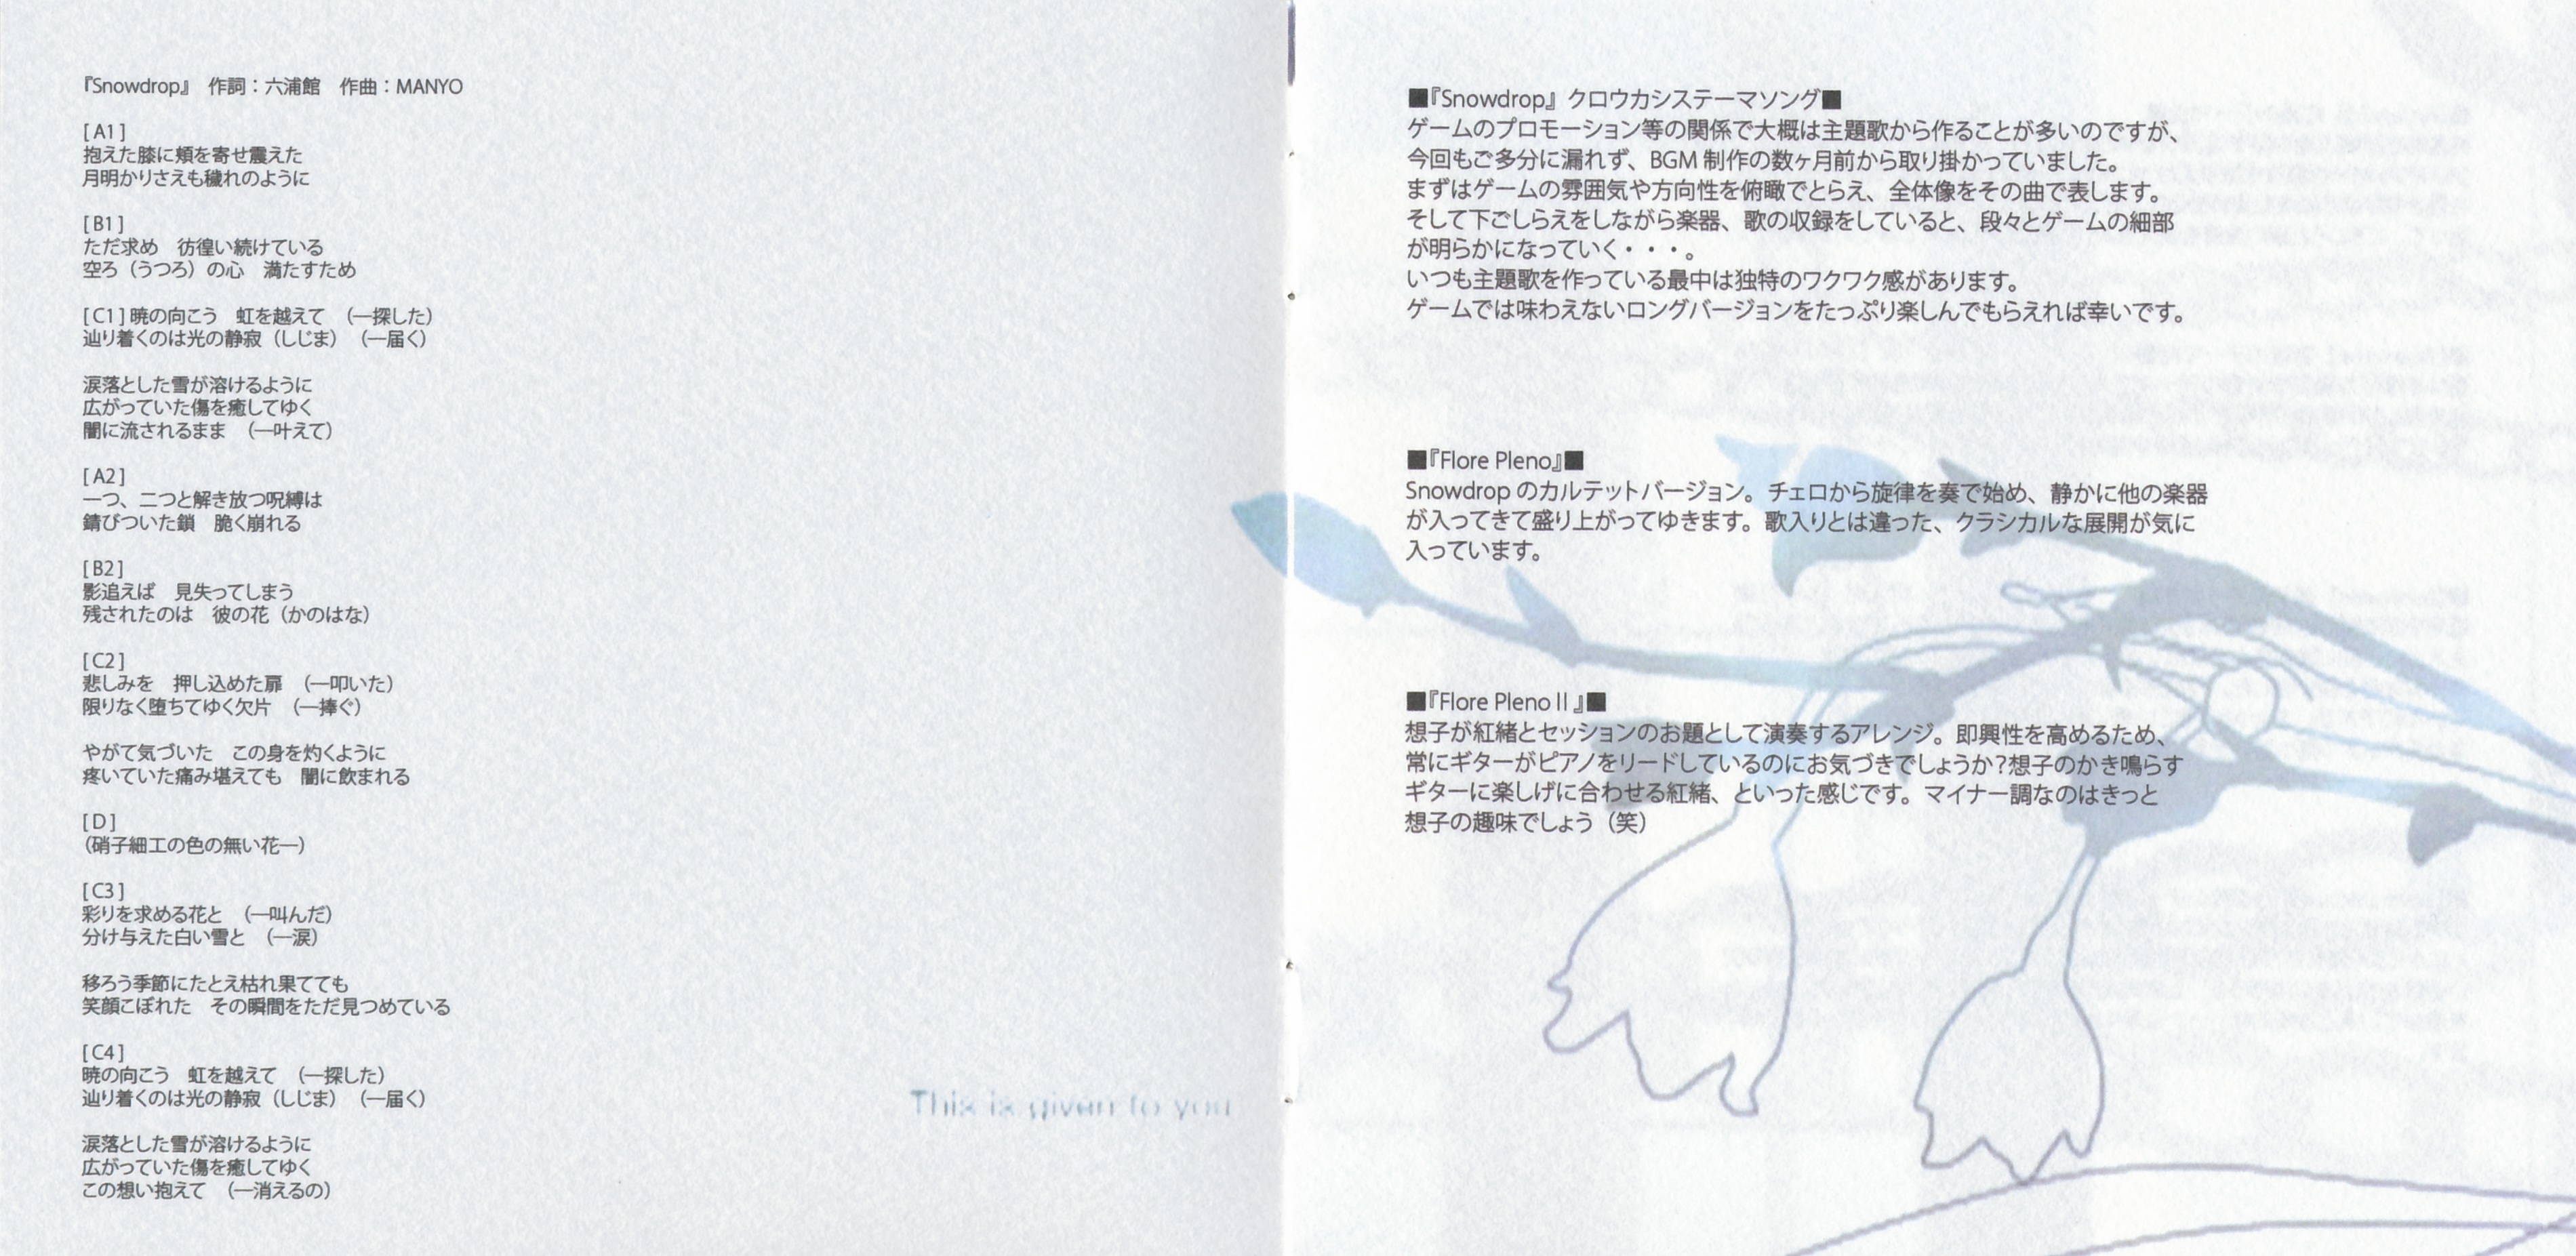 『Snowdrop』　作詞：六浦館　作曲：MANYO
[A1]
抱えた膝に頬を寄せ震えた
月明かりさえも穢れのように
[B1]
ただ求め　彷徨い続けている
空ろ（うつろ）の心　満たすため
[C1] 暁の向こう　虹を越えて　（―探した）
辿り着くのは光の静寂（しじま）　（―届く）
涙落とした雪が溶けるように
広がっていた傷を癒してゆく
闇に流されるまま　（―叶えて）
[A2]
一つ、二つと解き放つ呪縛は
錆びついた鎖　脆く崩れる
[B2]
影追えば　見失ってしまう
残されたのは　彼の花（かのはな）
[C2]
悲しみを　押し込めた扉　（―叩いた）
限りなく堕ちてゆく欠片　（―捧ぐ）
やがて気づいた　この身を灼くように
疼いていた痛み堪えても　闇に飲まれる
[D]
（硝子細工の色の無い花―）
[C3]
彩りを求める花と　（―叫んだ）
分け与えた白い雪と　（―涙）
移ろう季節にたとえ枯れ果てても
笑顔こぼれた　その瞬間をただ見つめている
[C4]
暁の向こう　虹を越えて　（―探した）
辿り着くのは光の静寂（しじま）　（―届く）
涙落とした雪が溶けるように
広がっていた傷を癒してゆく
この想い抱えて　（―消えるの）
This is given to you
■『Snowdrop』クロウカシステーマソング■
ゲームのプロモーション等の関係で大概は主題歌から作ることが多いのですが、
今回もご多分に漏れず、BGM 制作の数ヶ月前から取り掛かっていました。
まずはゲームの雰囲気や方向性を俯瞰でとらえ、全体像をその曲で表します。
そして下ごしらえをしながら楽器、歌の収録をしていると、段々とゲームの細部
が明らかになっていく・・・。
いつも主題歌を作っている最中は独特のワクワク感があります。
ゲームでは味わえないロングバージョンをたっぷり楽しんでもらえれば幸いです。
■『Flore Pleno』■
Snowdrop のカルテットバージョン。チェロから旋律を奏で始め、静かに他の楽器
が入ってきて盛り上がってゆきます。歌入りとは違った、クラシカルな展開が気に
入っています。
■『Flore Pleno II 』■
想子が紅緒とセッションのお題として演奏するアレンジ。即興性を高めるため、
常にギターがピアノをリードしているのにお気づきでしょうか？想子のかき鳴らす
ギターに楽しげに合わせる紅緒、といった感じです。マイナー調なのはきっと
想子の趣味でしょう（笑）